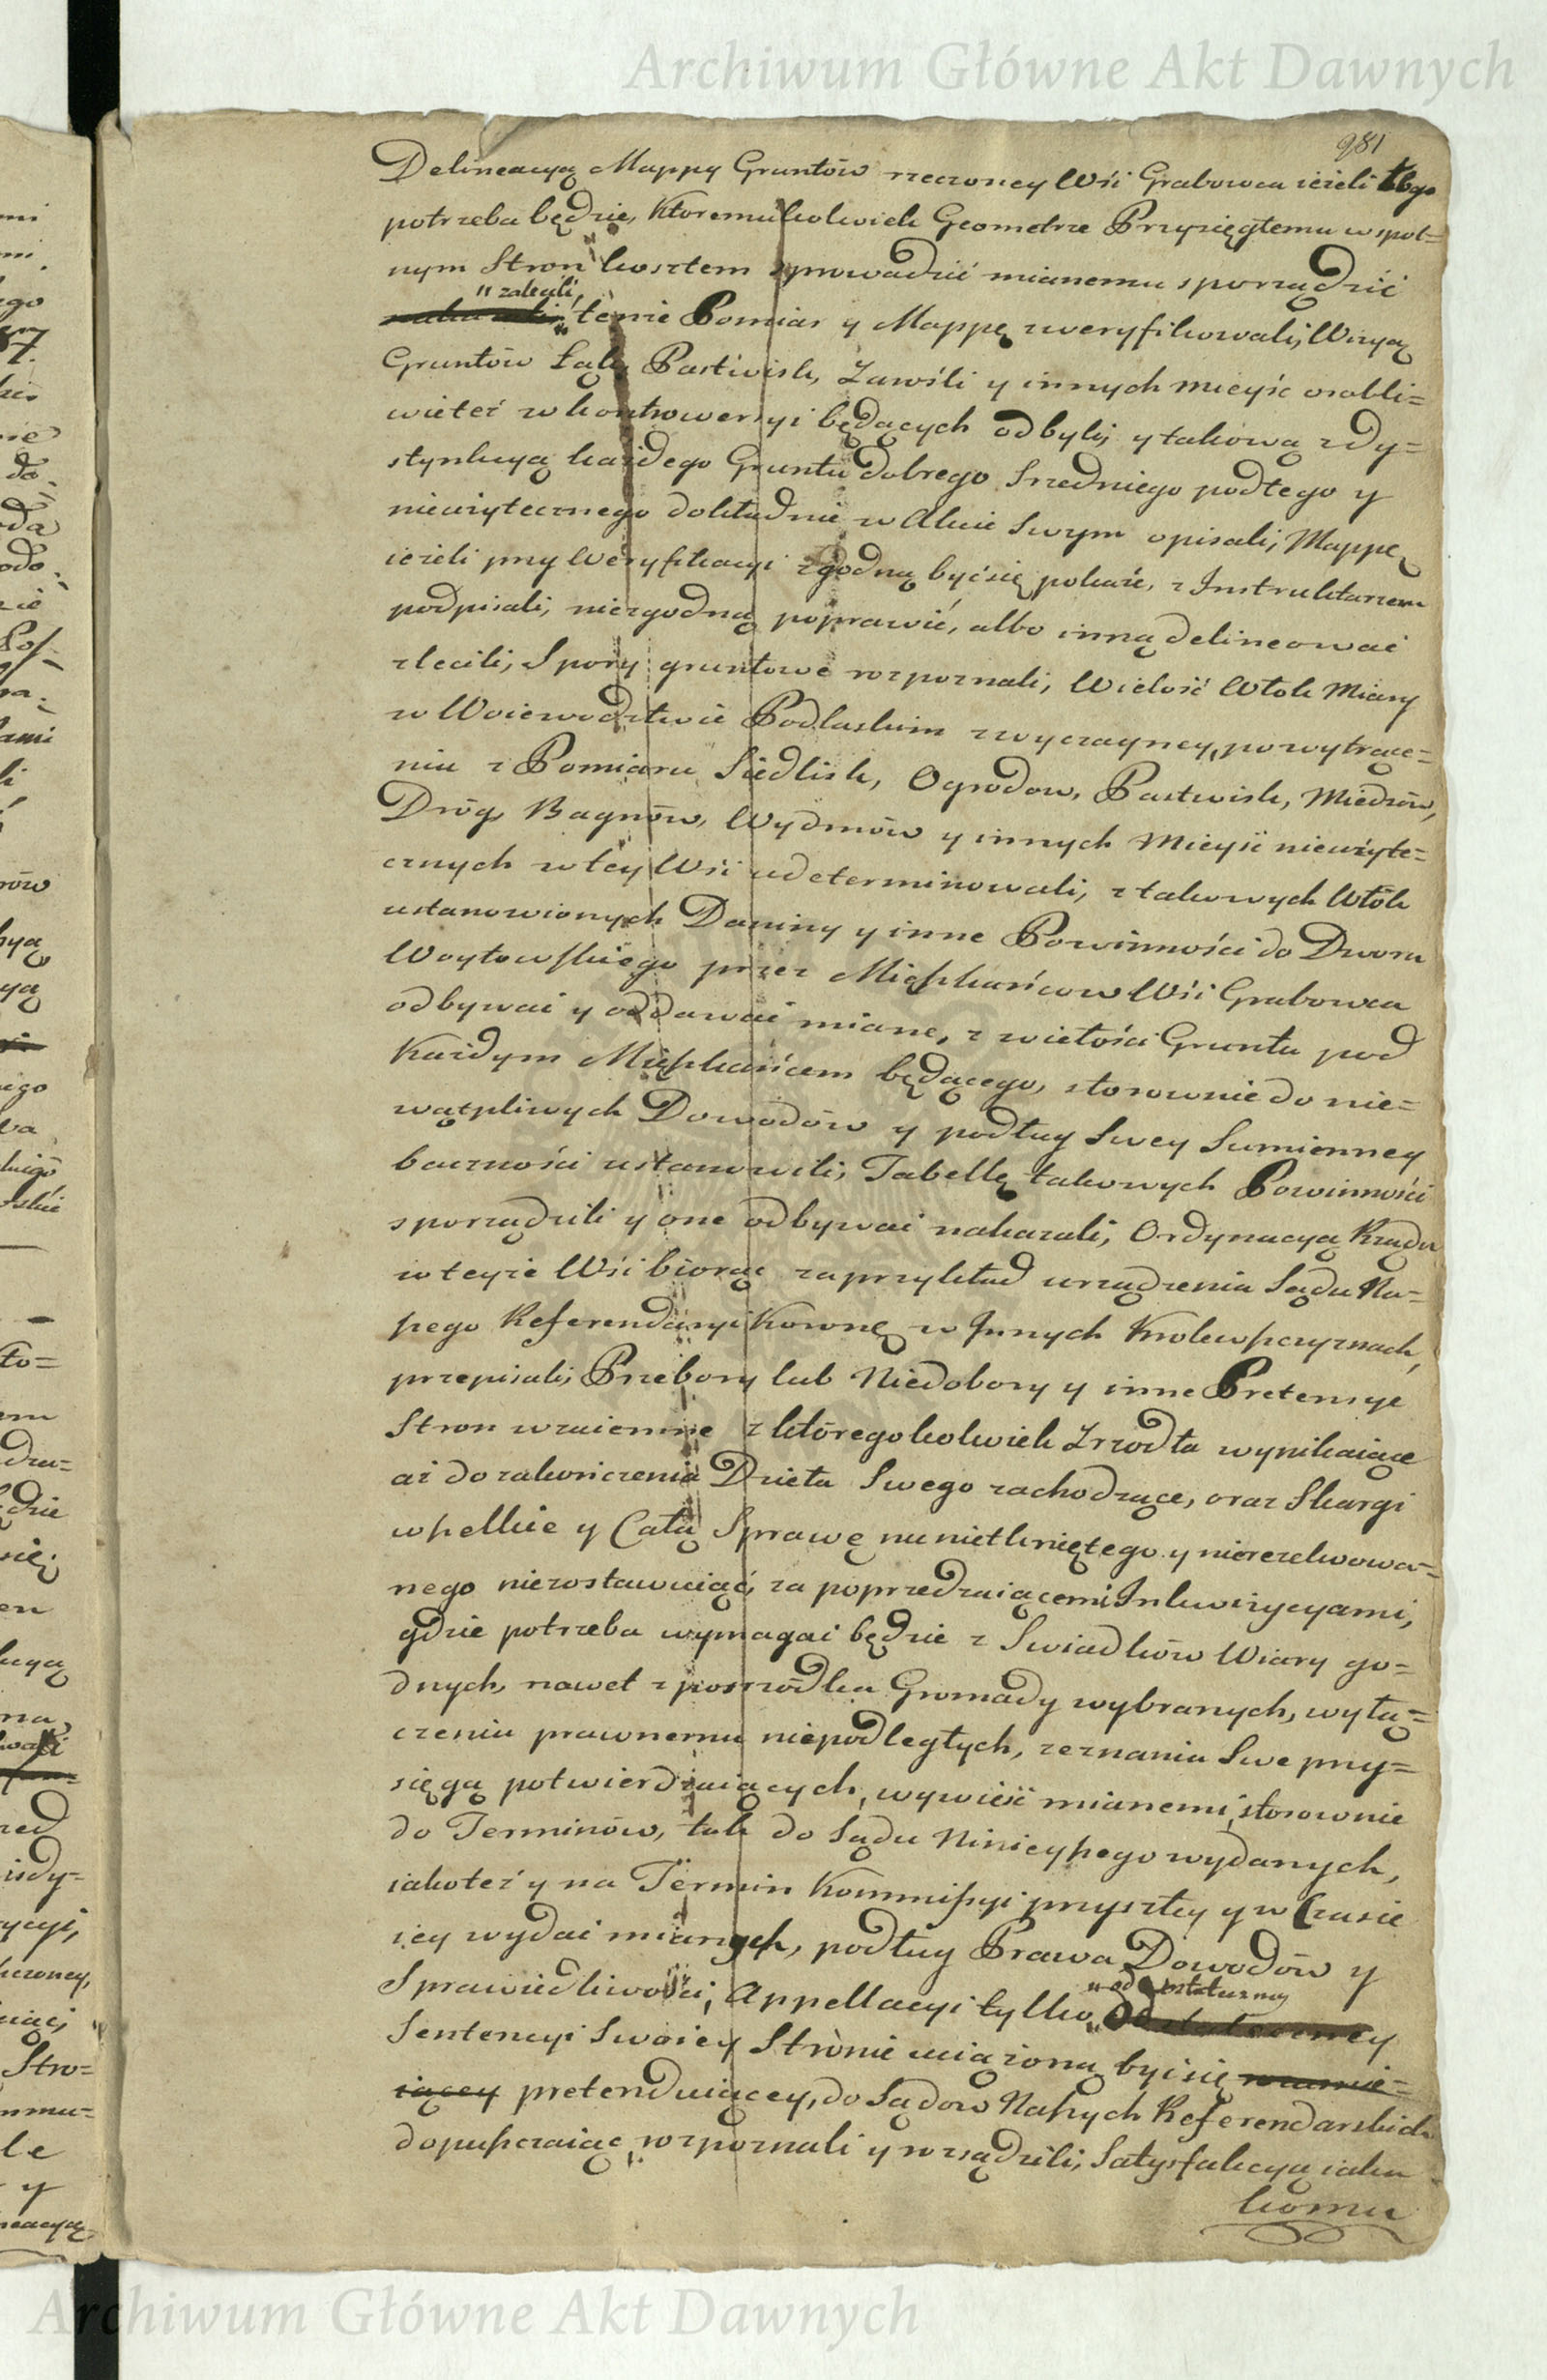 Archiwum Główne Akt Dawnych
981
Delineacyą Mappy Gruntów rzeczoney Wsi Grabowca ieżeli tego
potrzeba będzie, Ktoremukolwiek Geometrze Przysięgłemu wspol=
nym Stron kosztem sprowadzić mianemu sporządzić
zalecili,
tenże Pomiar y Mappę zweryfikowali, Wizyą
Gruntów Łąk, Pastwisk, Zarośli y innych mieysc osobli=
wieteż w kontrowersyi będących odbyli, y takową z dy=
stynkcyą każdego Gruntu dobrego Srzedniego podłego y
nieużytecznego dokładnie w Akcie Swym opisali, Mappę
ieżeli przy Weryfikacyi zgodną być się pokaże, z Instruktarzem
podpisali, niezgodną poprawić, albo inną delineować
zlecili, Spory gruntowe rozpoznali, Wielość Włok Miary
w Woiewodztwie Podlaskim zwyczayney, po wytrące=
niu z Pomiaru Siedlisk, Ogrodow, Pastwisk, Miedzów,
Dróg, Bagnów, Wydmów y innych Mieysc nieużyte=
cznych w tey Wsi udeterminowali, z takowych Włók
ustanowionych Daniny y inne Powinności do Dworu
Woytowskiego przez Mieszkańcow Wsi Grabowca
odbywać y oddawać miane, z wielości Gruntu pod
Każdym Mieszkańcem będącego, stosownie do nie=
wątpliwych Dowodów y podług Swey Sumienney
baczności ustanowili, Tabellę takowych Powinności
sporządzili y one odbywać nakazali, Ordynacyą Rządu
w teyże Wsi biorąc za przykład urządzenia Sądu Na=
szego Referendaryi Koronney w Innych Krolewszczyznach,
przepisali, Przebory lub Niedobory y inne Pretensye
Stron wzaiemne z któregokolwiek Zrzodła wynikaiące
aż do zakończenia Dzieła Swego zachodzące, oraz Skargi
wszelkie y Całą Sprawę nic nietkniętego y nierezolwowa=
nego niezostawuiąc, za poprzedzaiącemi Inkwizycyami,
gdzie potrzeba wymagać będzie z Swiadków Wiary go=
dnych, nawet z posrzódka Gromady wybranych, wyłą=
czeniu prawnemu niepodległych, zeznania Swe przy=
sięgą potwierdzaiących, wywieść mianemi, stosownie
do Terminów, tak do Sądu Ninieyszego wydanych,
iakoteż y na Termin Kommissyi przyszłey y w Czasie
iey wydać mianych, podług Prawa Dowodów y
Sprawiedliwości, Appellacyi tylko
od ostateczney
Sentencyi Swoiey Stronie uciążoną być się
iącey pretenduiącey, do Sądow Naszych Referendarskich
dopuszczaiąc, rozpoznali y rozsądzili, Satysfakcyą iaka
komu
Archiwum Główne Akt Dawnych